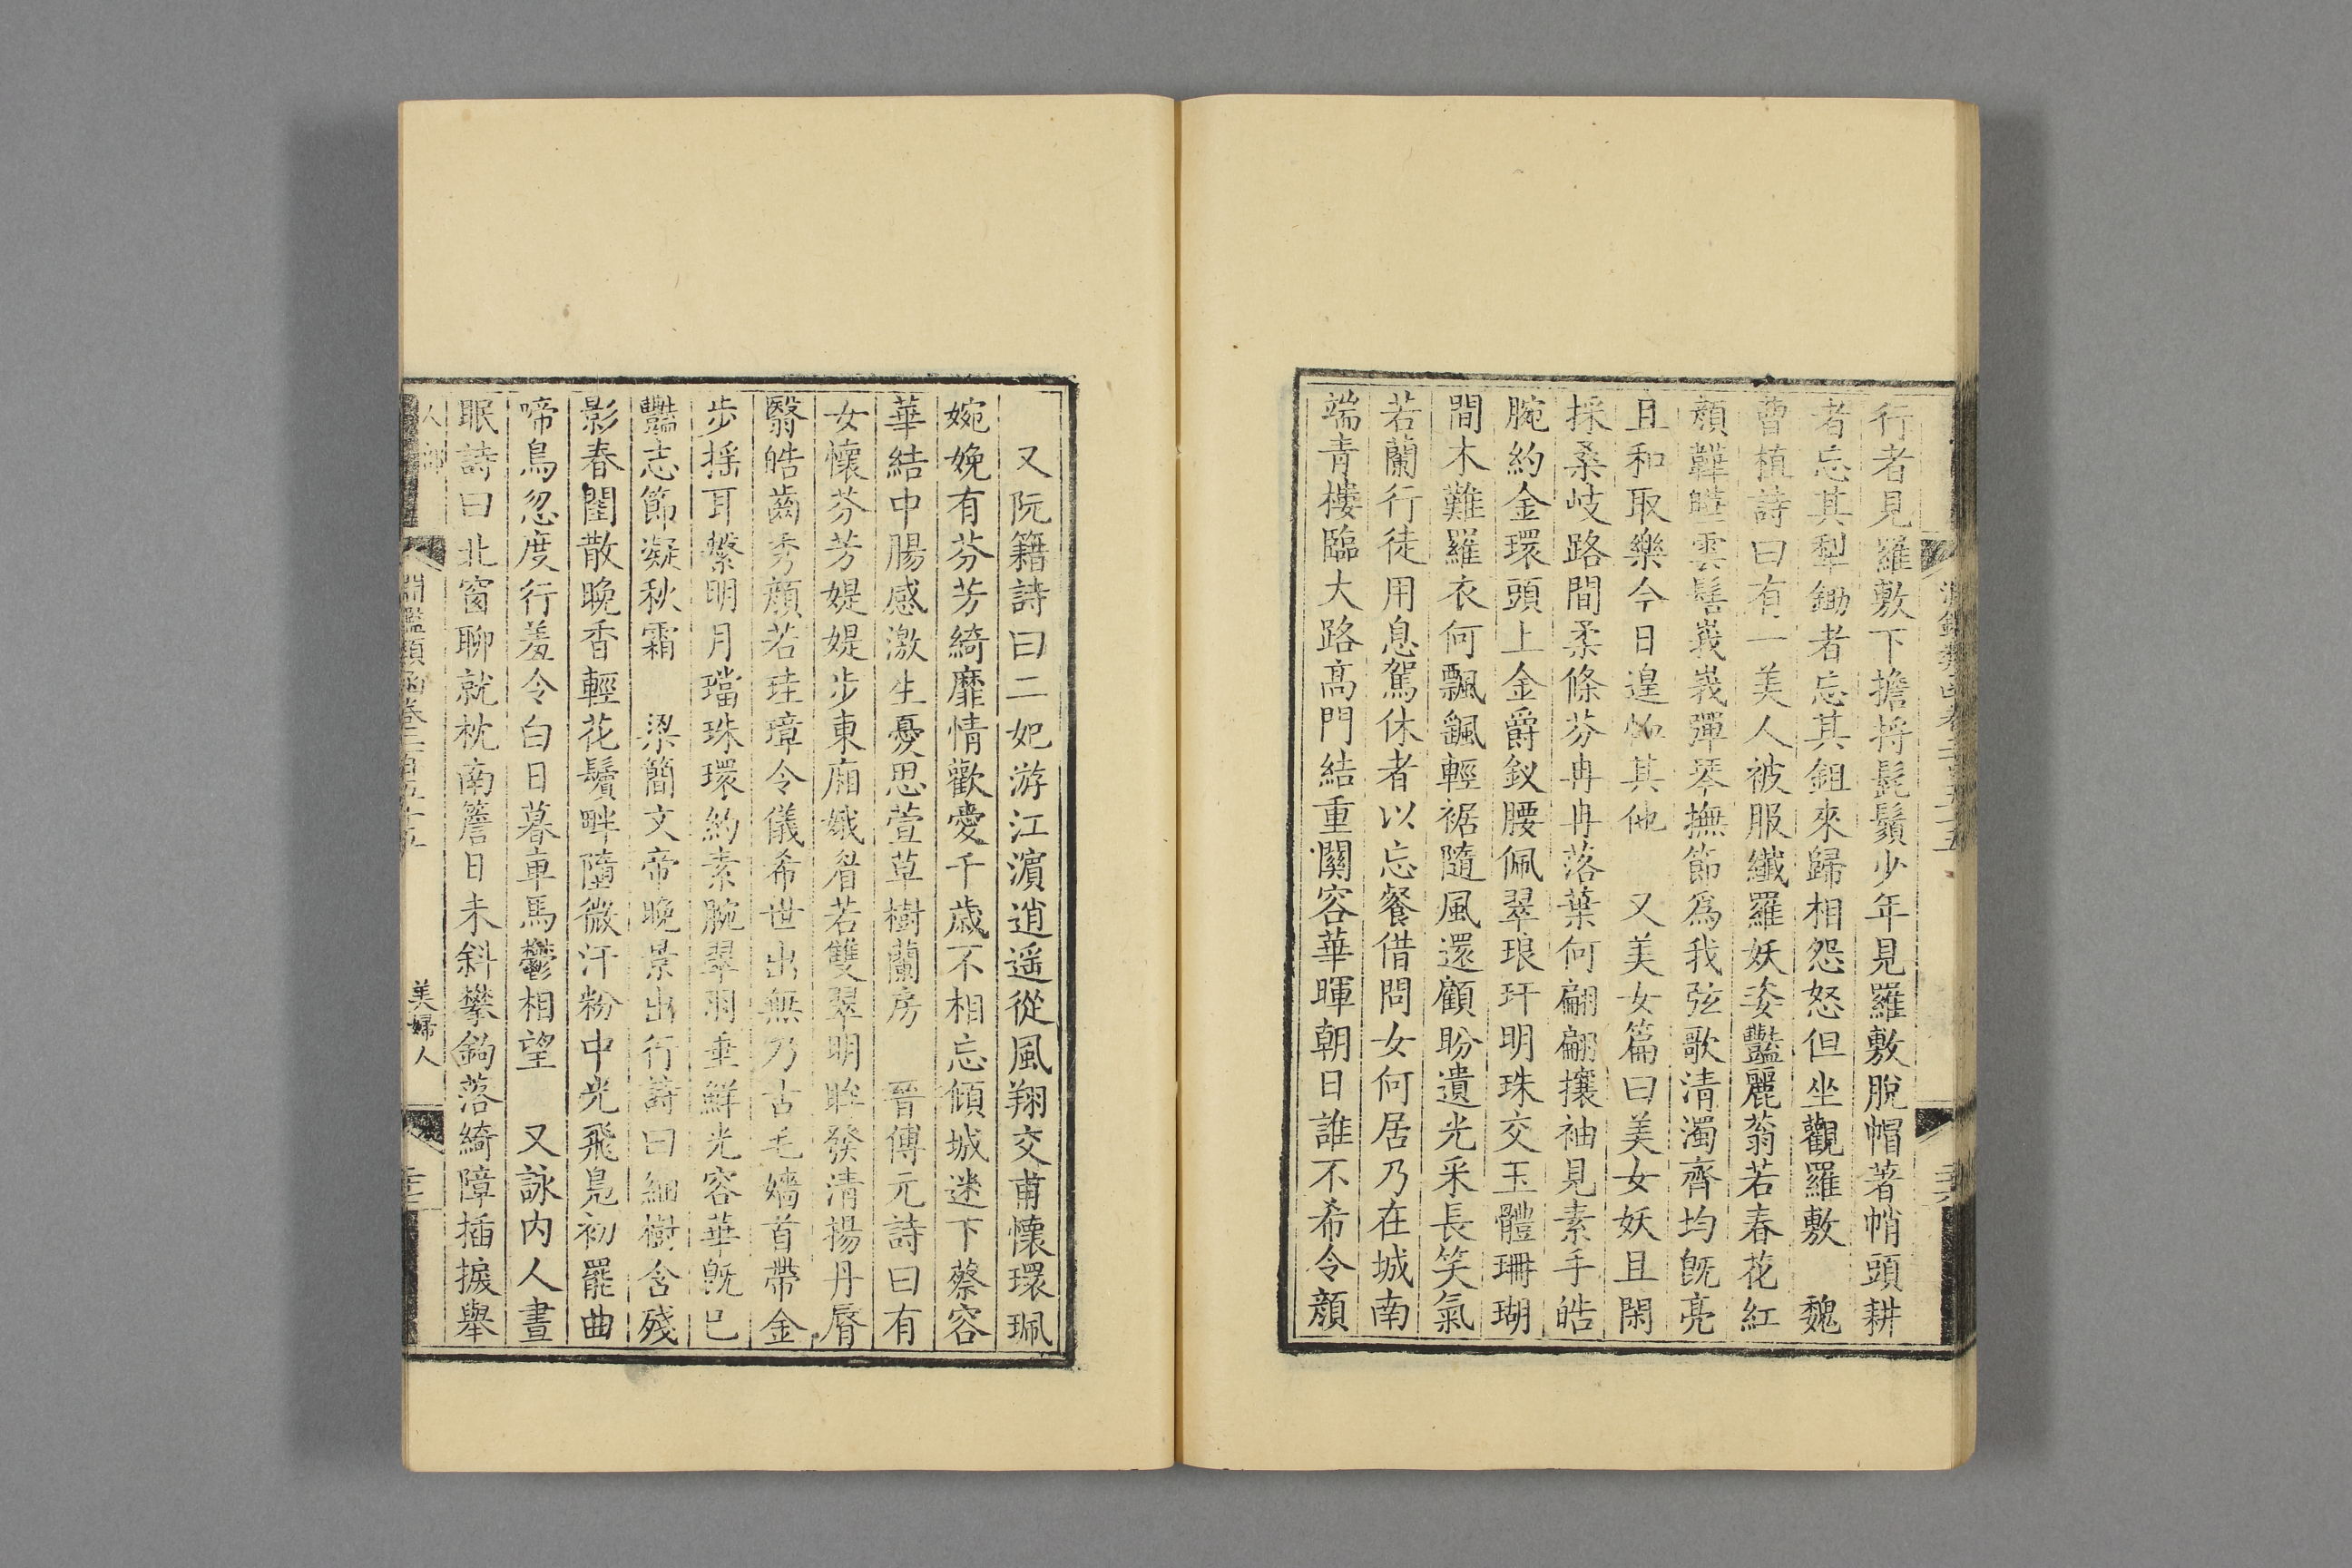 行者見羅敷下擔捋髭鬚少年見羅敷脫帽著帩頭耕
者忘其犁鋤者忘其鉏來歸相怨怒但坐觀羅敷　魏
曹植詩曰有一美人被服纖羅妖姿豔麗蓊若春花紅
顏韡曄雲髻峩峩彈琴撫節為我弦歌清濁齊均旣亮
且和取樂今日遑恤其他　又美女篇曰美女妖且閑
採桑岐路間柔條芬冉冉落葉何翩翩攘袖見素手皓
腕約金環頭上金爵釵腰佩翠琅玕明珠交玉體珊瑚
間木難羅衣何飄颻輕裾隨風還顧盼遺光采長笑氣
若蘭行徒用息駕休者以忘餐借問女何居乃在城南
端青樓臨大路高門結重關容華暉朝日誰不希令顏
又阮籍詩曰二妃游江濵逍遥從風翔交甫懷環珮
婉娩有芬芳綺靡情歡愛千歲不相忘傾城迷下蔡容
華結中腸感激生憂思萱草樹蘭房　晉傅元詩曰有
女懷芬芳媞媞步東廂蛾眉若雙翠明眸發清揚丹脣
翳皓齒秀顏若珪璋令儀希世出無乃古毛嬙首帶金
步搖耳繫明月璫珠環約素腕翠羽垂鮮光容華旣已
豔志節凝秋霜　梁簡文帝晚景出行詩曰細樹含殘
影春閨散晚香輕花鬢畔墮微汗粉中光飛鳧初罷曲
啼鳥忽度行羞令白日暮車馬鬱相望　又詠内人晝
眠詩曰北窗聊就枕南簷日未斜攀鉤落綺障插捩舉
淵鑑類函卷二百五十五
美婦人